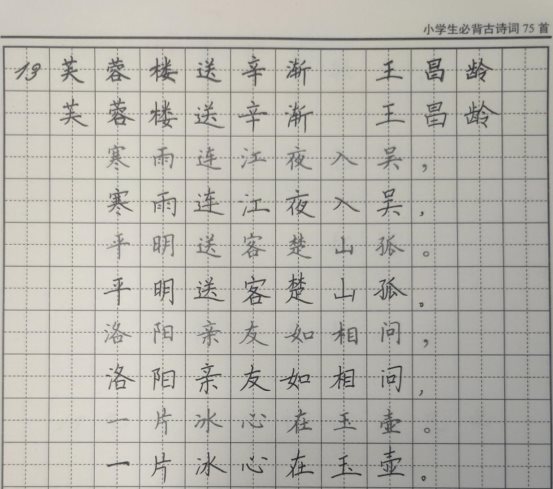 小学生必背古诗词 75 首
13 芙蓉楼送辛渐 王昌龄
芙蓉楼送辛渐 王昌龄
寒雨连江夜入吴，
寒雨连江夜入吴，
平明送客楚山孤。
平明送客楚山孤。
洛阳亲友如相问，
洛阳亲友如相问，
一片冰心在玉壶。
一片冰心在玉壶。